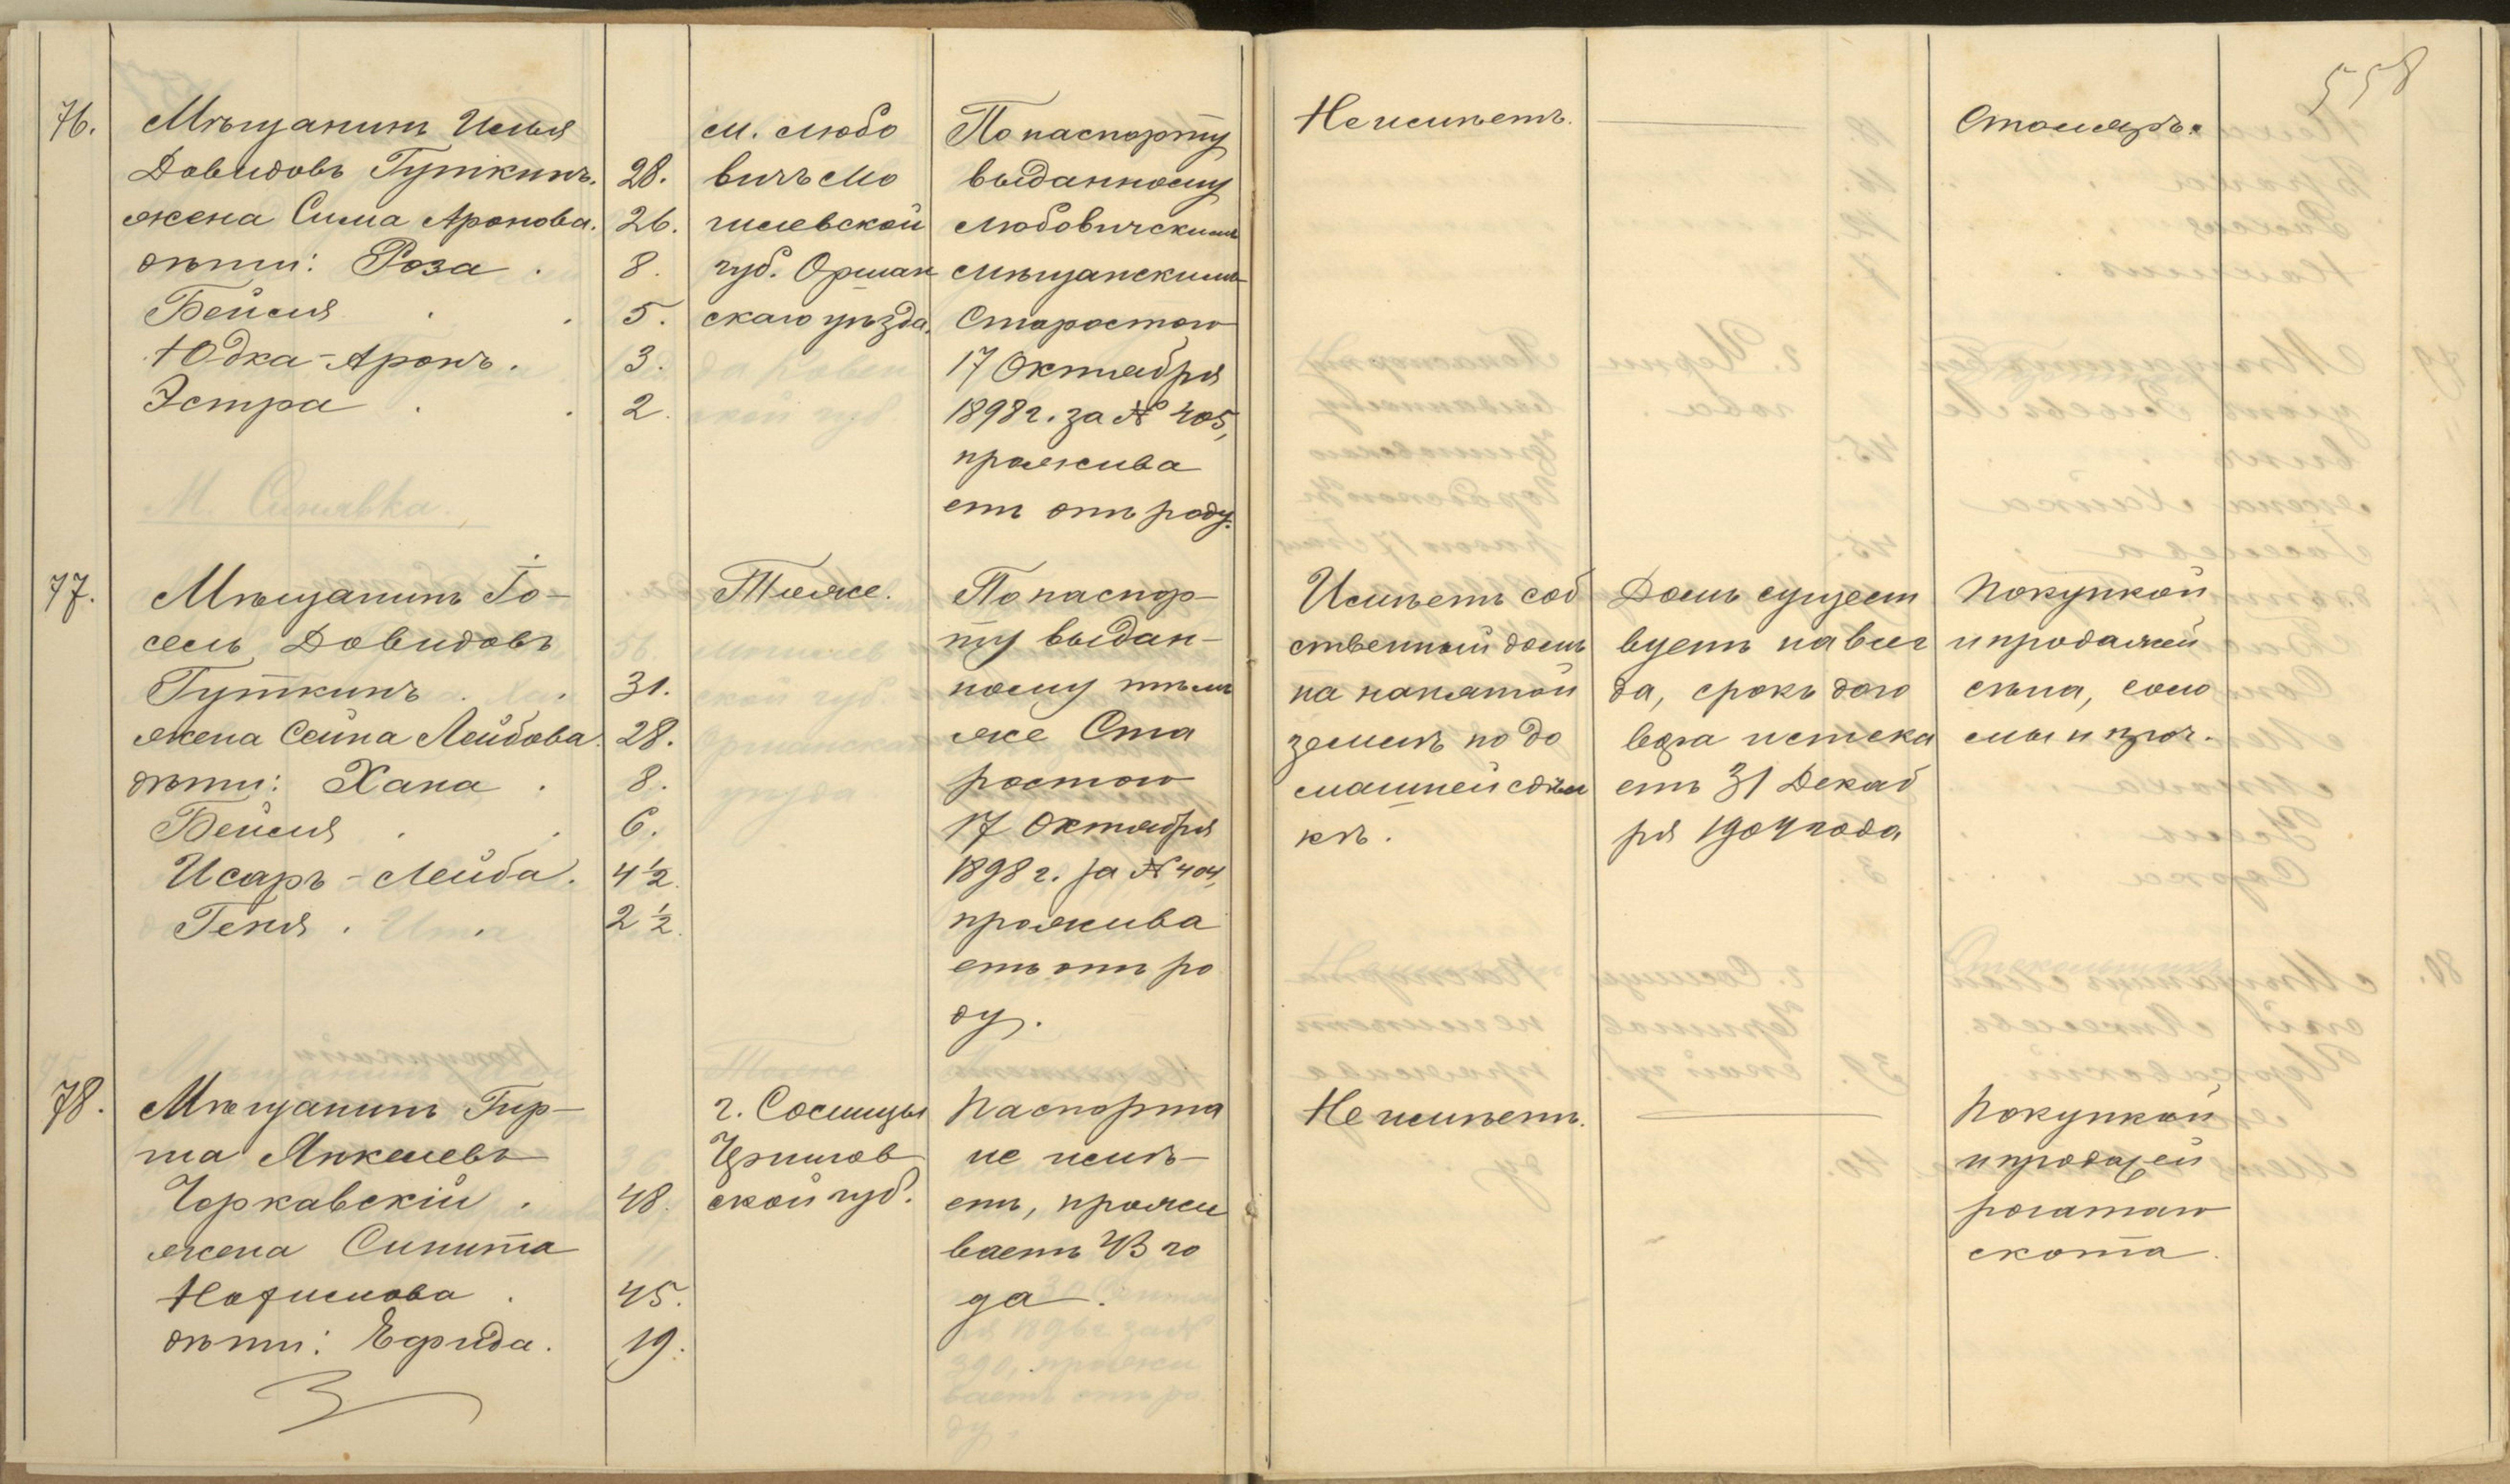 558
76.
Мѣщанинъ Илья
Довидовъ Гуткинъ.
жена Сима Аронова.
дѣти: Роза .
Бейля . .
Юдка-Аронъ.
Эстра . .
28.
26.
8.
5.
3.
2.
м. Любо
вичъ Мо
гилевской
губ. Оршан
скаго уѣзда.
По паспорту
выданному
Любовичскимъ
мѣщанскимъ
Старостою
17 Октября
1898 г. за № 405,
прожива
етъ отъ роду.
Не имѣетъ.
Столяръ.
77.
Мѣщанинъ Іо-
сель Довидовъ
Гуткинъ . .
жена Сейна Лейбова.
дѣти: Хана .
Бейля . .
Исаръ-Лейба.
Геня . .
31.
28.
8.
6.
4 1/2.
2 1/2.
Тоже.
По паспор-
ту выдан-
ному тѣмъ
же Ста
ростою
17 Октября
1898 г. за № 404,
прожива
етъ отъ ро
ду.
Имѣетъ соб
ственный домъ
на нанятой
землѣ по до
машней сдѣл
кѣ.
Домъ сущест
вуетъ навсег
да, срокъ дого
вора истека
етъ 31 Декаб
ря 1904 года
Покупкой
и продажей
сѣна, соло
мы и проч.
78.
Мѣщанинъ Гир-
ша Янкелевъ
Чоркавскій .
жена Синита
Нохимова .
дѣти: Ефрида.
48.
45.
19.
г. Сосницы
Чернигов
ской губ.
Паспорта
не имѣ-
етъ, прожи
ваетъ 43 го
да.
Не имѣетъ.
Покупкой
и продажей
рогатаго
скота.